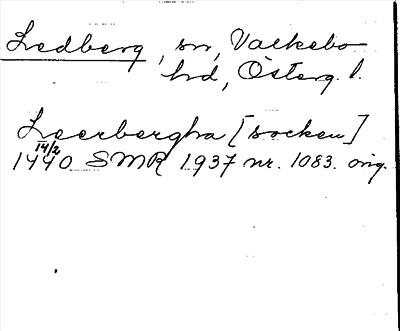 Ledberg, sn, Valkebo
hd, Österg. l.
Leerbergha [socken]
14/2
1440 SMR 1937 nr. 1083. orig.